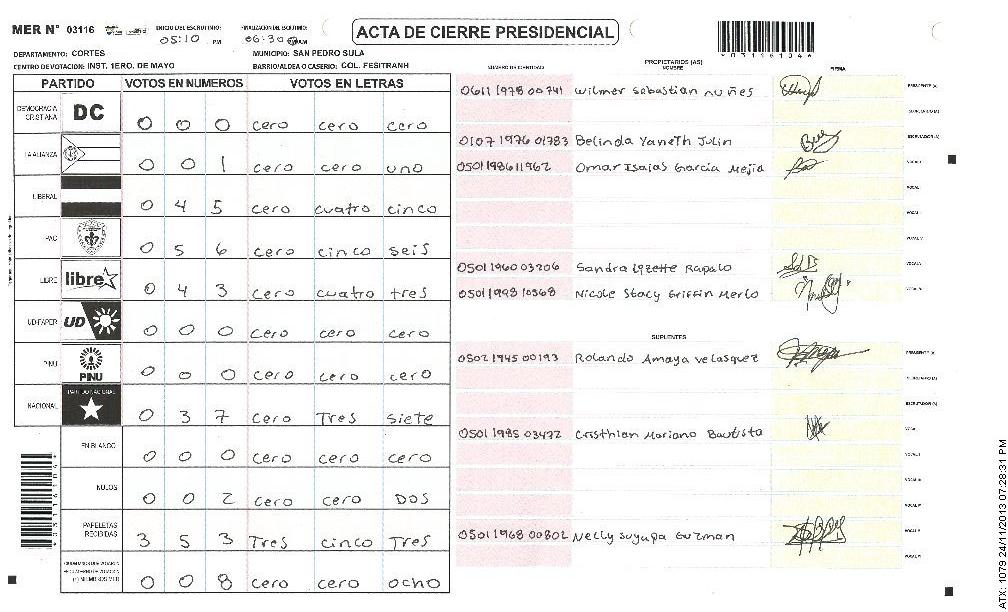 MER N° 03116 INICIO DEL ESCRUTINIO: 05:10 PM FINALIZACION DEL ESCRUTINIO: 06:30 PM
ACTA DE CIERRE PRESIDENCIAL
DEPARTAMENTO: CORTES MUNICIPIO: SAN PEDRO SULA
CENTRO DE VOTACION: INST. 1ERO. DE MAYO BARRIO/ALDEA O CASERIO: COL. FESITRANH
PARTIDO VOTOS EN NUMEROS VOTOS EN LETRAS
DEMOCRACIA CRISTIANA DC 0 0 0 cero cero cero
LA ALIANZA 0 0 1 cero cero uno
LIBERAL 0 4 5 cero cuatro cinco
PAC 0 5 6 cero cinco seis
LIBRE libre 0 4 3 cero cuatro tres
UD-FAPER UD 0 0 0 cero cero cero
PINU PINU 0 0 0 cero cero cero
NACIONAL PARTIDO NACIONAL 0 3 7 cero Tres siete
EN BLANCO 0 0 0 cero cero cero
NULOS 0 0 2 cero cero DOS
PAPELETAS RECIBIDAS 3 5 3 Tres cinco Tres
0 0 8 cero cero ocho
NUMERO DE IDENTIDAD PROPIETARIOS (AS) NOMBRE FIRMA
0611 1978 00741 Wilmer Sebastian nuñes PRESIDENTE (A)
SECRETARIO (A)
0107 1976 01783 Belinda Yaneth Julin ESCRUTADOR (A)
0501198611962 Omar Isaias Garcia Mejia VOCAL I
0501 1960 03206 Sandra Lizette Rapalo
0501 1993 10368 Nicole Stacy Griffin Merlo
SUPLENTES
0502 1945 00193 Rolando Amaya Velasquez PRESIDENTE (A)
SECRETARIO (A)
ESCRUTADOR (A)
0501 1985 03472 Cristhian Mariano Bautista
0501 1968 00802 Nelly Suyapa Guzman
03116104
ATX: 1079 24/11/2013 07:28:31 PM